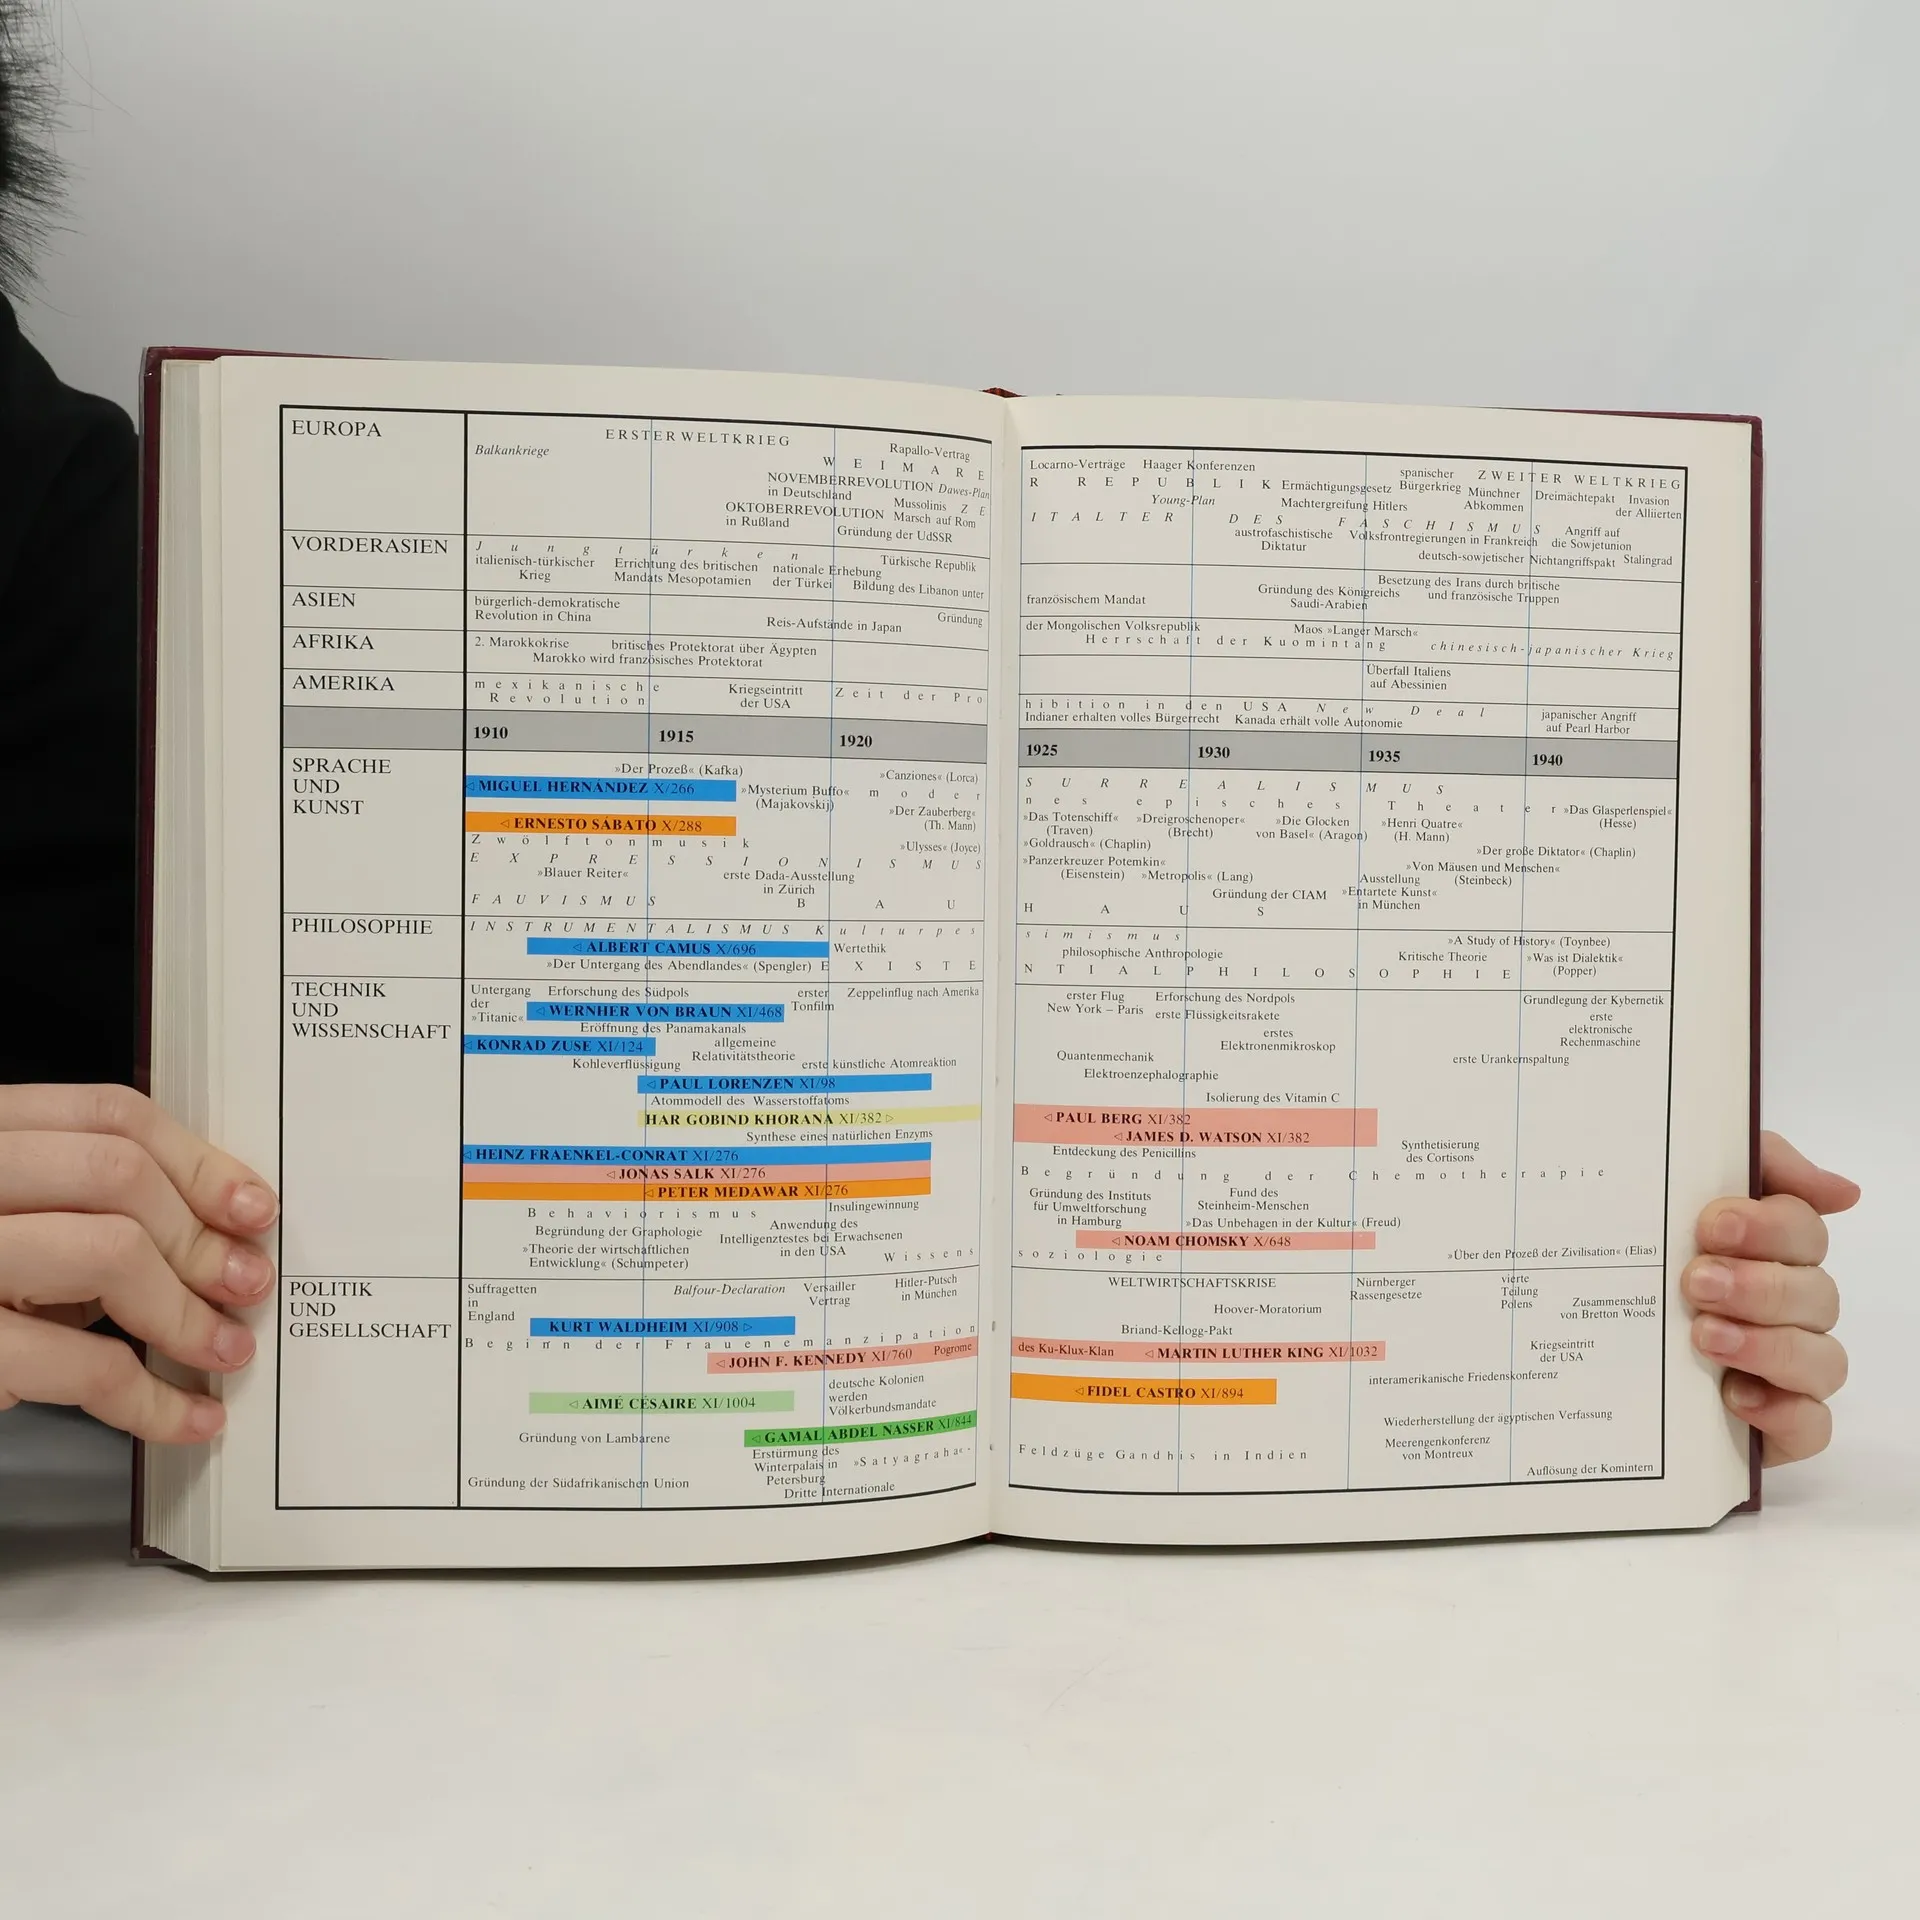 EUROPA
ERSTER WELTKRIEG
Balkankriege
Rapallo-Vertrag
WEIMARE
NOVEMBERREVOLUTION Dawes-Plan
in Deutschland
Mussolinis ZE
OKTOBERREVOLUTION Marsch auf Rom
in Rußland
Gründung der UdSSR
VORDERASIEN
Jungtürken
italienisch-türkischer
Krieg
Errichtung des britischen
Mandats Mesopotamien
nationale Erhebung
der Türkei
Türkische Republik
Bildung des Libanon unter
ASIEN
bürgerlich-demokratische
Revolution in China
Reis-Aufstände in Japan
Gründung
AFRIKA
2. Marokkokrise
britisches Protektorat über Ägypten
Marokko wird französisches Protektorat
AMERIKA
mexikanische
Revolution
Kriegseintritt
der USA
Zeit der Pro
1910 1915 1920
SPRACHE
UND
KUNST
»Der Prozeß« (Kafka)
»Canziones« (Lorca)
◁ MIGUEL HERNÁNDEZ X/266
»Mysterium Buffo«
(Majakovskij)
moder
»Der Zauberberg«
(Th. Mann)
◁ ERNESTO SÁBATO X/288
Zwölftonmusik
»Ulysses« (Joyce)
EXPRESSIONISMUS
»Blauer Reiter«
erste Dada-Ausstellung
in Zürich
FAUVISMUS
BAU
PHILOSOPHIE
INSTRUMENTALISMUS Kulturpes
◁ ALBERT CAMUS X/696
Wertethik
»Der Untergang des Abendlandes« (Spengler) EXISTE
TECHNIK
UND
WISSENSCHAFT
Untergang
der
»Titanic«
Erforschung des Südpols
erster
Tonfilm
Zeppelinflug nach Amerika
◁ WERNHER VON BRAUN XI/468
Eröffnung des Panamakanals
◁ KONRAD ZUSE XI/124
allgemeine
Relativitätstheorie
Kohleverflüssigung
erste künstliche Atomreaktion
◁ PAUL LORENZEN XI/98
Atommodell des Wasserstoffatoms
HAR GOBIND KHORANA XI/382 ▷
Synthese eines natürlichen Enzyms
◁ HEINZ FRAENKEL-CONRAT XI/276
◁ JONAS SALK XI/276
◁ PETER MEDAWAR XI/276
Insulingewinnung
Behaviorismus
Begründung der Graphologie
Anwendung des
Intelligenztestes bei Erwachsenen
in den USA
»Theorie der wirtschaftlichen
Entwicklung« (Schumpeter)
Wissens
POLITIK
UND
GESELLSCHAFT
Suffragetten
in
England
Balfour-Declaration
Versailler
Vertrag
Hitler-Putsch
in München
KURT WALDHEIM XI/908 ▷
Beginn der Frauenemanzipation
◁ JOHN F. KENNEDY XI/760 Pogrome
deutsche Kolonien
werden
Völkerbundsmandate
◁ AIMÉ CÉSAIRE XI/1004
◁ GAMAL ABDEL NASSER XI/844
Gründung von Lambarene
Erstürmung des
Winterpalais in
Petersburg
»Satyagraha«-
Gründung der Südafrikanischen Union
Dritte Internationale
Locarno-Verträge Haager Konferenzen
spanischer
Bürgerkrieg
ZWEITER WELTKRIEG
R REPUBLIK
Ermächtigungsgesetz
Münchner
Abkommen
Dreimächtepakt
Invasion
der Alliierten
Young-Plan
Machtergreifung Hitlers
ITALTER DES FASCHISMUS
Angriff auf
die Sowjetunion
austrofaschistische
Diktatur
Volksfrontregierungen in Frankreich
deutsch-sowjetischer Nichtangriffspakt
Stalingrad
Besetzung des Irans durch britische
und französische Truppen
französischem Mandat
Gründung des Königreichs
Saudi-Arabien
der Mongolischen Volksrepublik
Maos »Langer Marsch«
Herrschaft der Kuomintang
chinesisch-japanischer Krieg
Überfall Italiens
auf Abessinien
hibition in den USA New Deal
Indianer erhalten volles Bürgerrecht
Kanada erhält volle Autonomie
japanischer Angriff
auf Pearl Harbor
1925 1930 1935 1940
SURREALISMUS
nes episches Theater
»Das Glasperlenspiel«
(Hesse)
»Das Totenschiff«
(Traven)
»Dreigroschenoper«
(Brecht)
»Die Glocken
von Basel« (Aragon)
»Henri Quatre«
(H. Mann)
»Goldrausch« (Chaplin)
»Der große Diktator« (Chaplin)
»Panzerkreuzer Potemkin«
(Eisenstein)
»Metropolis« (Lang)
»Von Mäusen und Menschen«
(Steinbeck)
Gründung der CIAM
Ausstellung
»Entartete Kunst«
in München
HAUS
simismus
»A Study of History« (Toynbee)
philosophische Anthropologie
Kritische Theorie
»Was ist Dialektik«
(Popper)
NTIALPHILOSOPHIE
erster Flug
New York – Paris
Erforschung des Nordpols
erste Flüssigkeitsrakete
Grundlegung der Kybernetik
erste
elektronische
Rechenmaschine
erstes
Elektronenmikroskop
Quantenmechanik
erste Urankernspaltung
Elektroenzephalographie
Isolierung des Vitamin C
◁ PAUL BERG XI/382
◁ JAMES D. WATSON XI/382
Entdeckung des Penicillins
Synthetisierung
des Cortisons
Begründung der Chemotherapie
Gründung des Instituts
für Umweltforschung
in Hamburg
Fund des
Steinheim-Menschen
»Das Unbehagen in der Kultur« (Freud)
◁ NOAM CHOMSKY X/648
soziologie
»Über den Prozeß der Zivilisation« (Elias)
WELTWIRTSCHAFTSKRISE
Nürnberger
Rassengesetze
vierte
Teilung
Polens
Hoover-Moratorium
Zusammenschluß
von Bretton Woods
Briand-Kellogg-Pakt
des Ku-Klux-Klan
◁ MARTIN LUTHER KING XI/1032
Kriegseintritt
der USA
◁ FIDEL CASTRO XI/894
interamerikanische Friedenskonferenz
Wiederherstellung der ägyptischen Verfassung
Feldzüge Gandhis in Indien
Meerengenkonferenz
von Montreux
Auflösung der Komintern